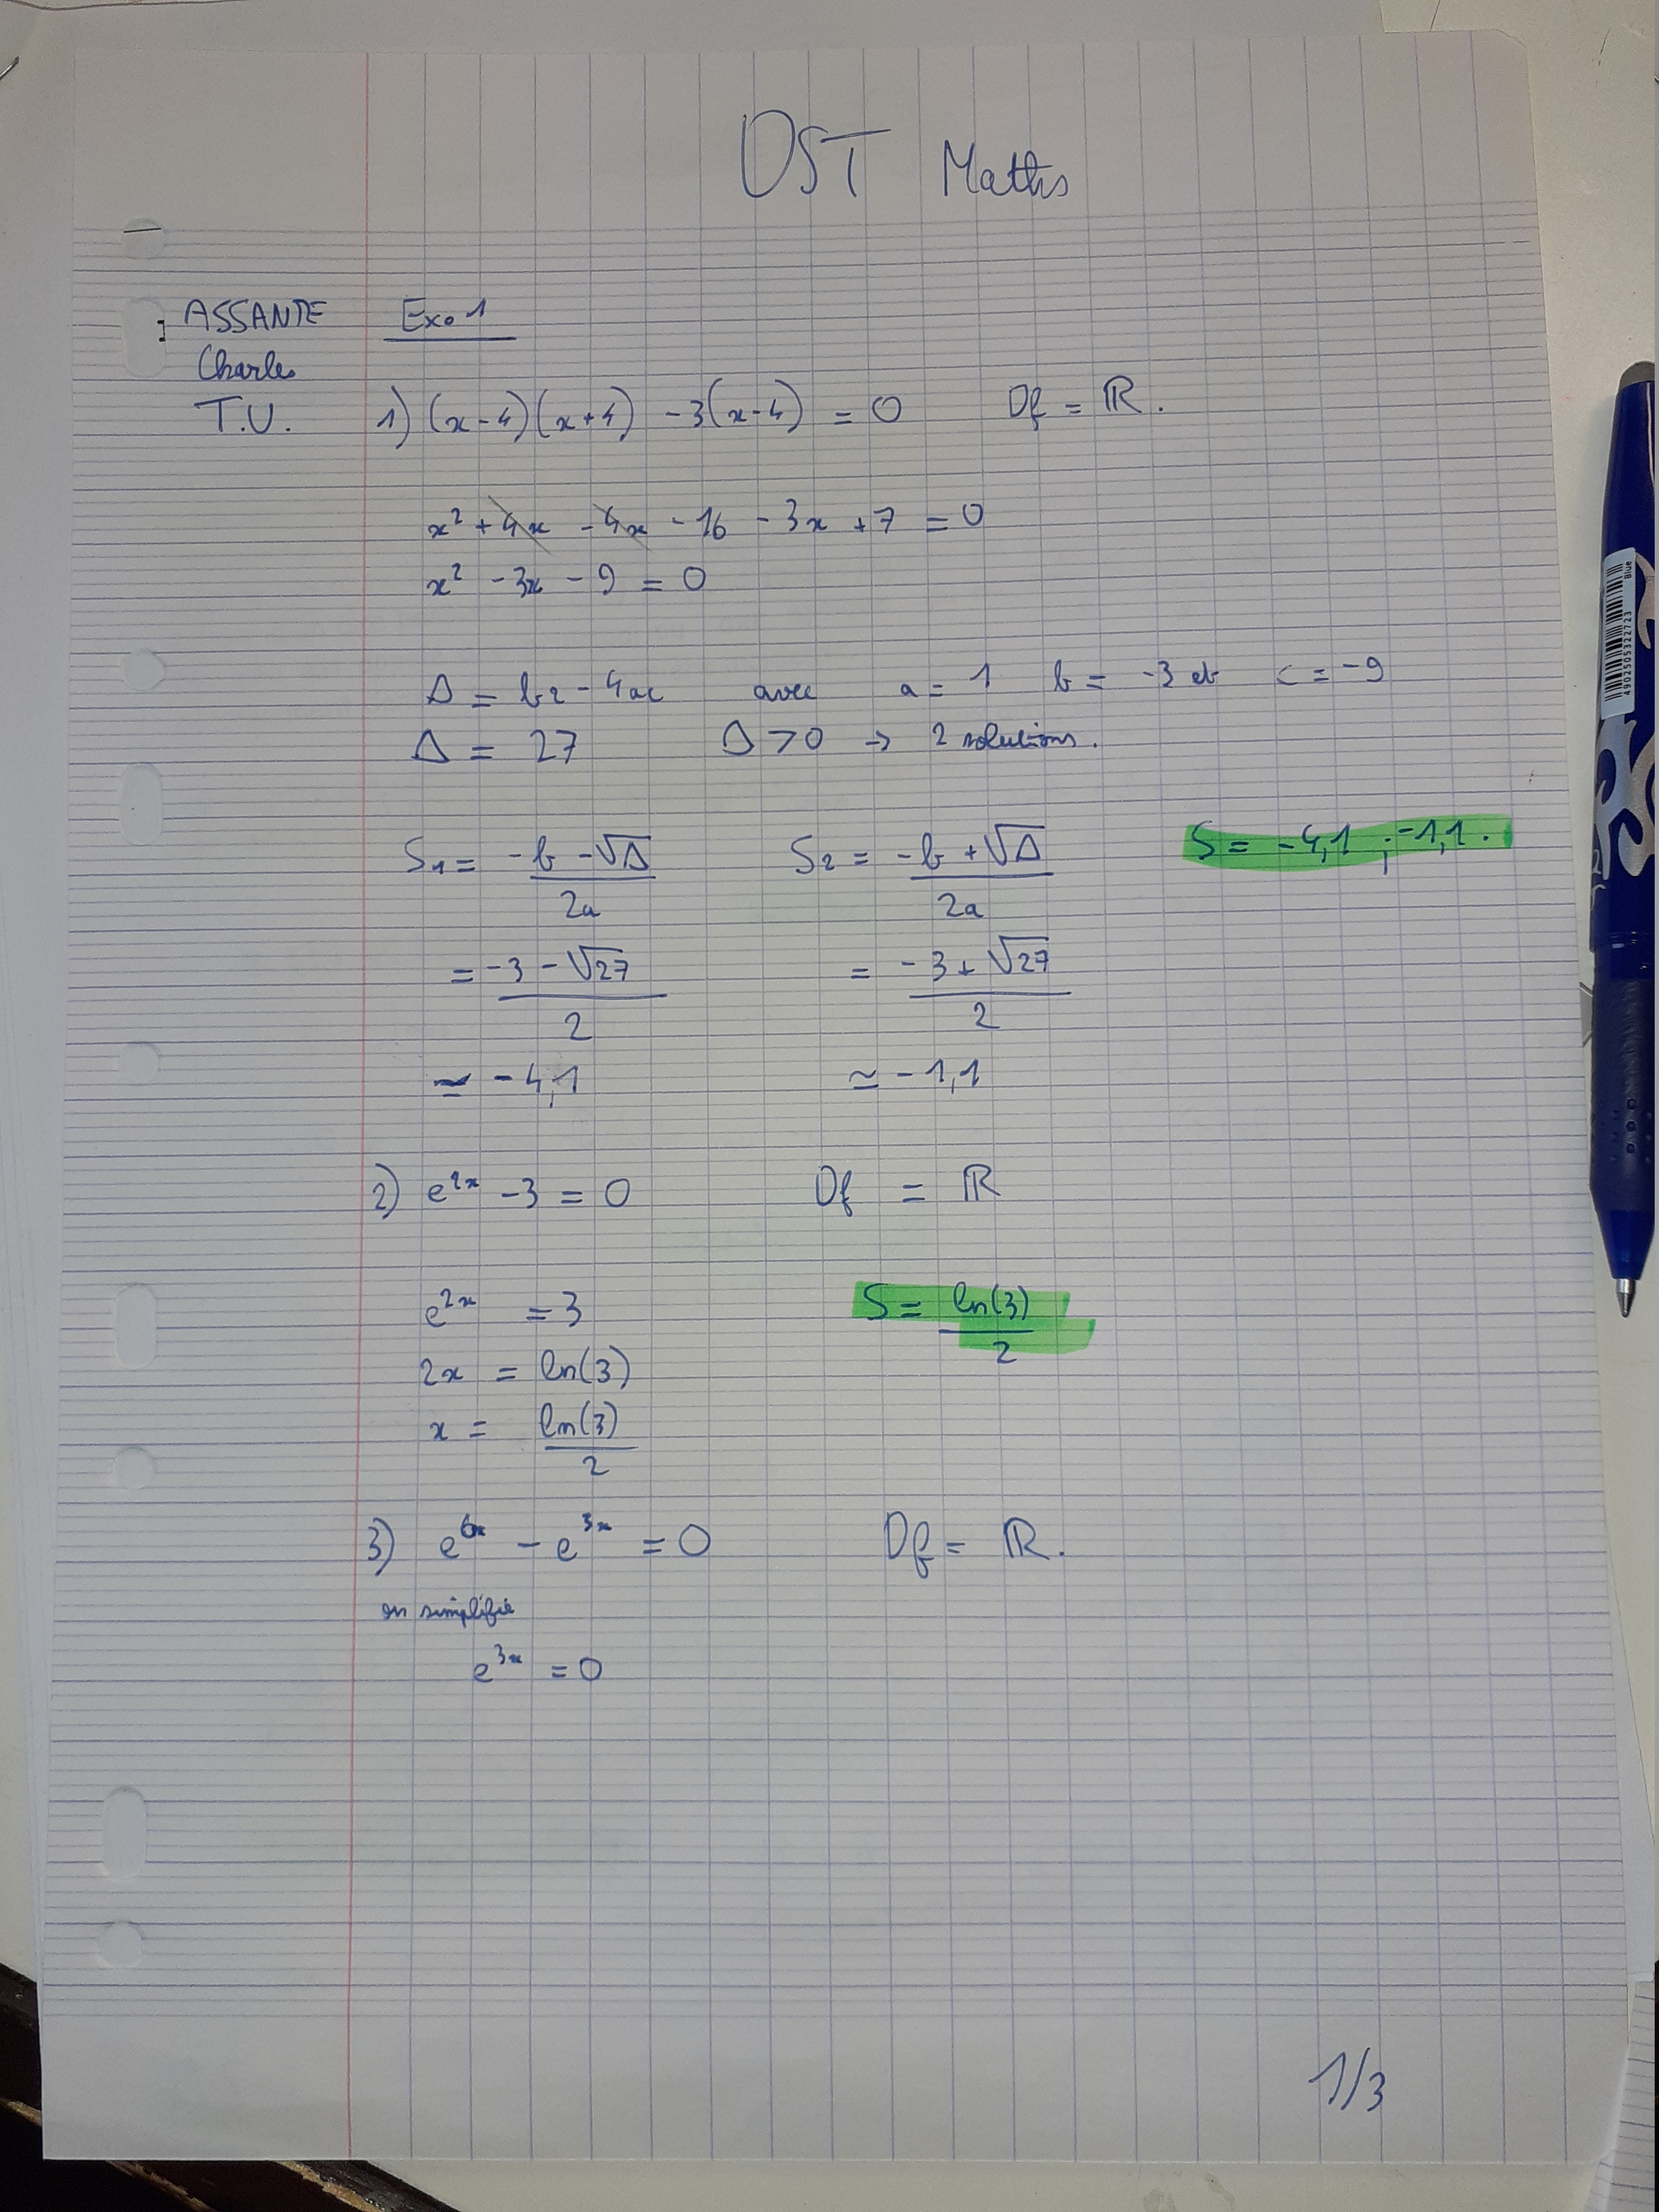 DST Maths
ASSANTE
Charles
T.U.
Exo 1
1) (x-4)(x+4) -3(x-4) = 0 Df = ℝ.
x² + 4x - 4x - 16 - 3x + 7 = 0
x² - 3x - 9 = 0
Δ = b2 - 4ac avec a = 1 b = -3 et c = -9
Δ = 27 Δ > 0 → 2 solutions.
S1 = (-b - √Δ)/2a S2 = (-b + √Δ)/2a S = -4,1 ; -1,1.
= (-3 - √27)/2 = (-3 + √27)/2
≈ -4,1 ≈ -1,1
2) e²ˣ - 3 = 0 Df = ℝ
e²ˣ = 3 S = ln(3)/2
2x = ln(3)
x = ln(3)/2
3) e⁶ˣ - e³ˣ = 0 Df = ℝ.
on simplifie
e³ˣ = 0
1/3
4902505322723
Blue